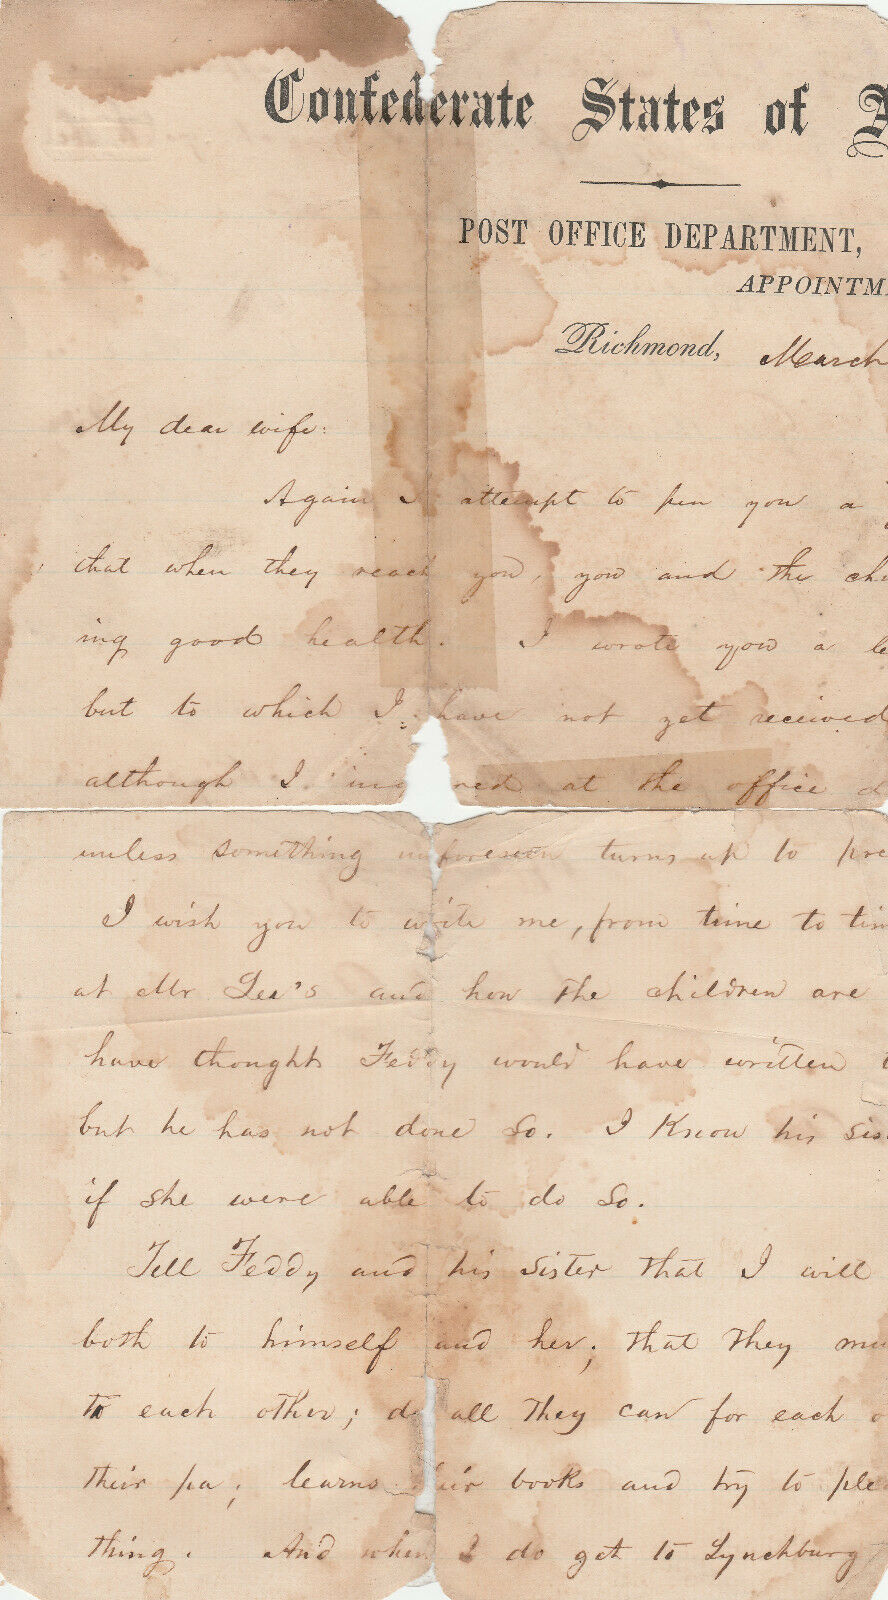 Confederate States of A
POST OFFICE DEPARTMENT,
APPOINTM
Richmond, March
My dear wife:
Again I attempt to pen you a
that when they reach you, you and the chi
ing good health. I wrote you a le
but to which I have not yet received
although I inq red at the office d
unless something unforeseen turns up to pre
I wish you to write me, from time to tim
at Mr Lee's and how the children are
have thought Feddy would have written
but he has not done so. I Know his sis
if she were able to do so.
Tell Feddy and his sister that I will
both to himself and her; that they mu
to each other; do all they can for each o
their pa; learn their books and try to plea
thing. And when I do get to Lynchburg